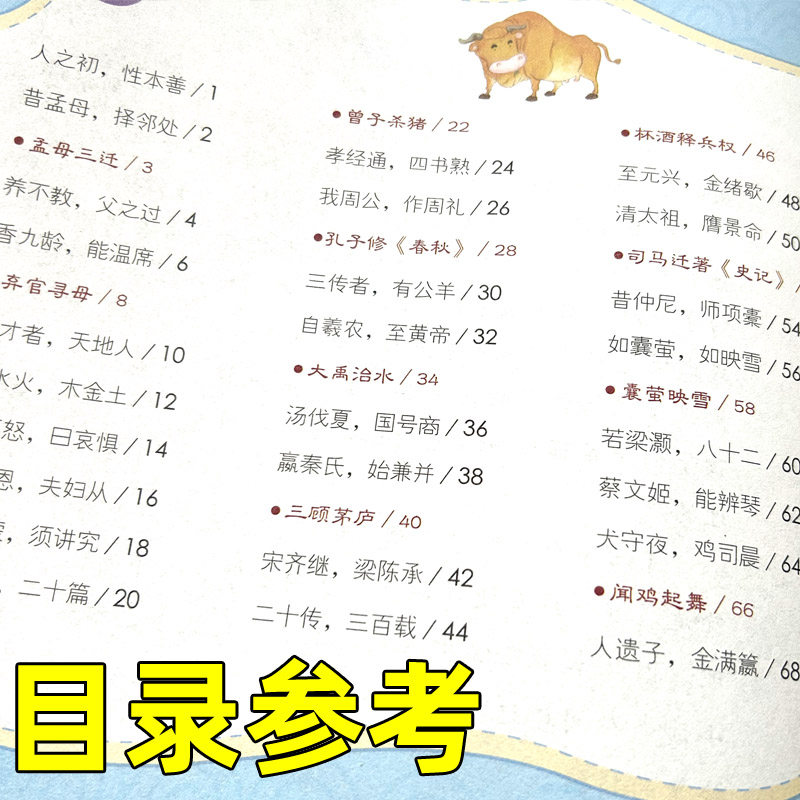 人之初，性本善 / 1
昔孟母，择邻处 / 2
●孟母三迁 / 3
养不教，父之过 / 4
香九龄，能温席 / 6
弃官寻母 / 8
才者，天地人 / 10
水火，木金土 / 12
怒，曰哀惧 / 14
恩，夫妇从 / 16
，须讲究 / 18
，二十篇 / 20
●曾子杀猪 / 22
孝经通，四书熟 / 24
我周公，作周礼 / 26
●孔子修《春秋》 / 28
三传者，有公羊 / 30
自羲农，至黄帝 / 32
●大禹治水 / 34
汤伐夏，国号商 / 36
嬴秦氏，始兼并 / 38
●三顾茅庐 / 40
宋齐继，梁陈承 / 42
二十传，三百载 / 44
●杯酒释兵权 / 46
至元兴，金绪歇 / 48
清太祖，膺景命 / 50
●司马迁著《史记》 /
昔仲尼，师项橐 / 54
如囊萤，如映雪 / 56
●囊萤映雪 / 58
若梁灏，八十二 / 60
蔡文姬，能辨琴 / 62
犬守夜，鸡司晨 / 64
●闻鸡起舞 / 66
人遗子，金满籯 / 68
目录参考